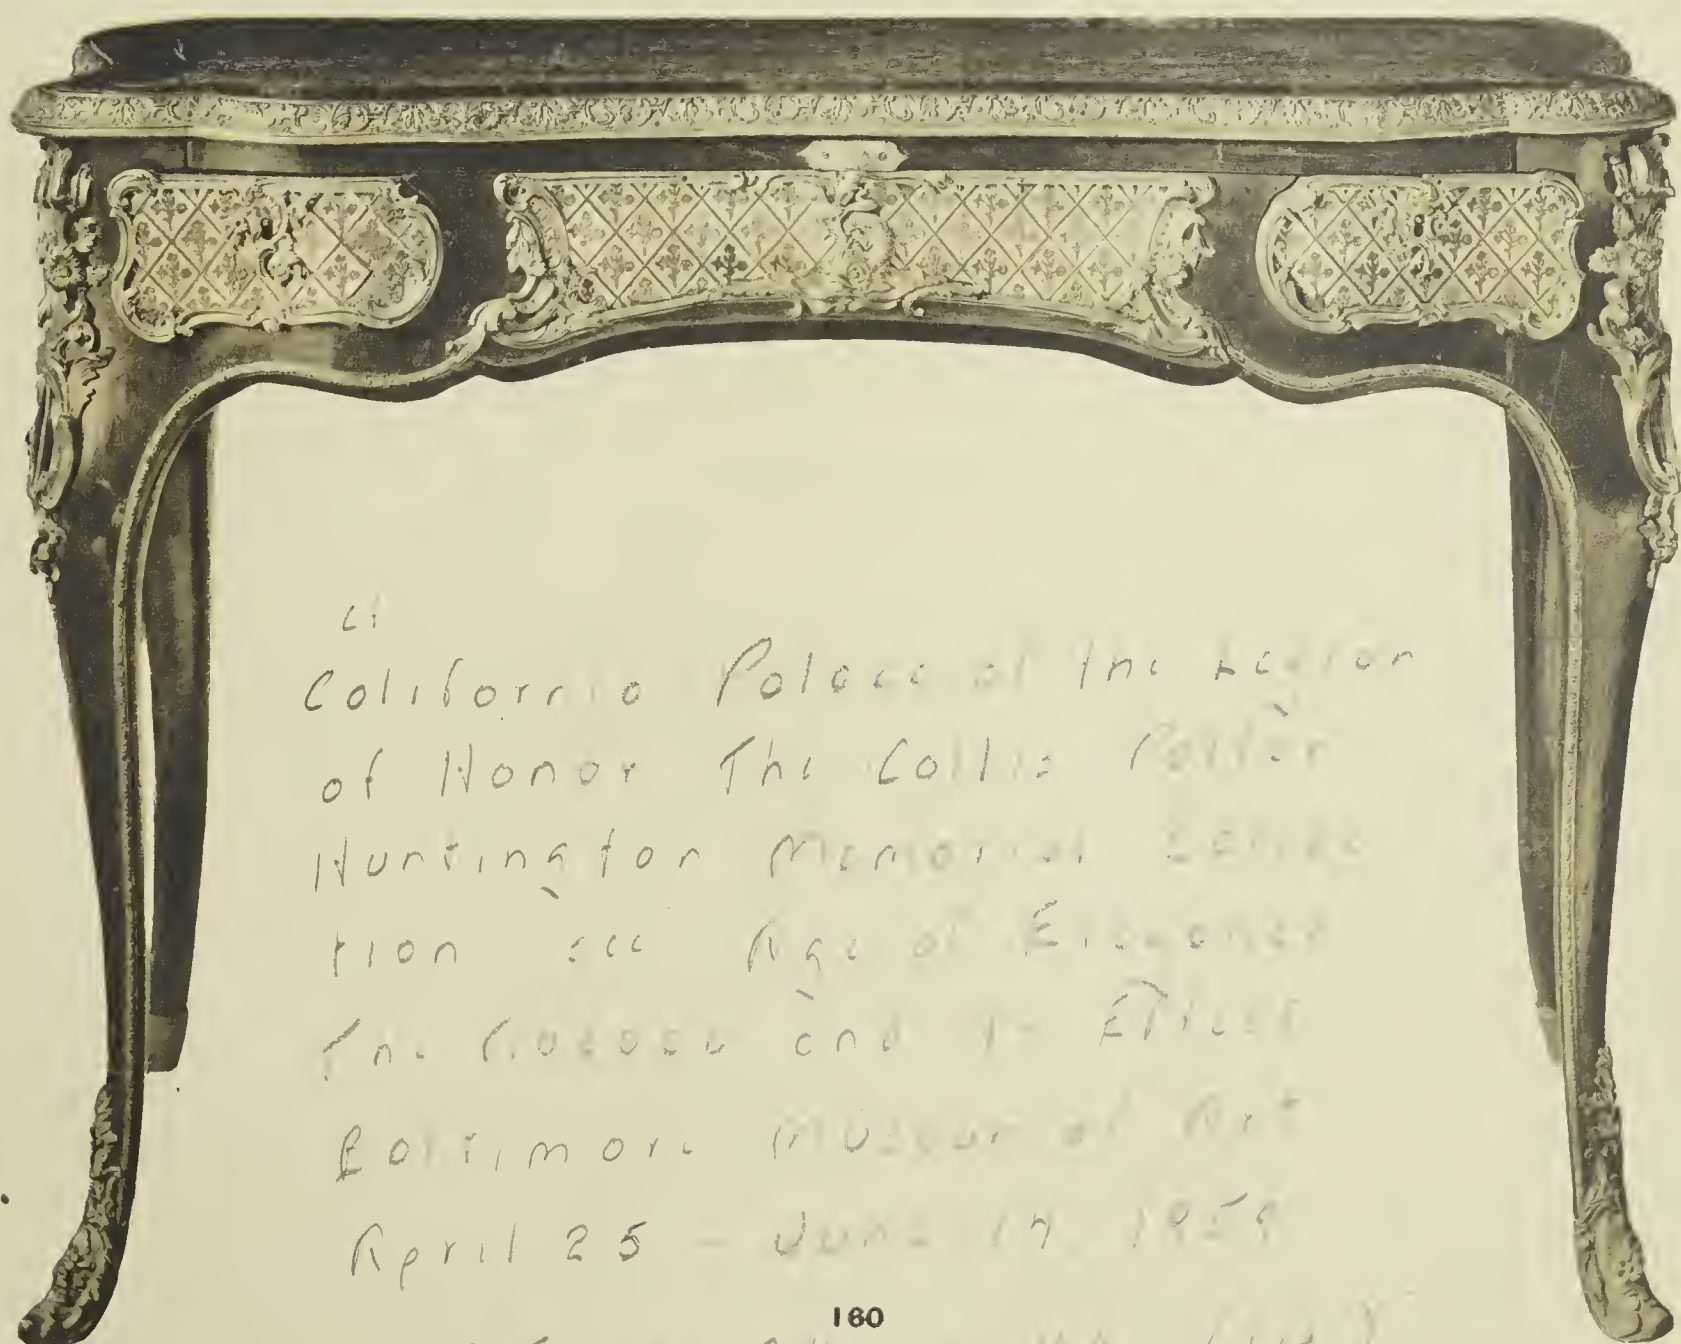 cf
California Palace of the Legion
of Honor The Collis Potter
Huntington Memorial Collec
tion see Age of Elegance
The Rococo and its Effect
Baltimore Museum of Art
April 25 – June 1959
160